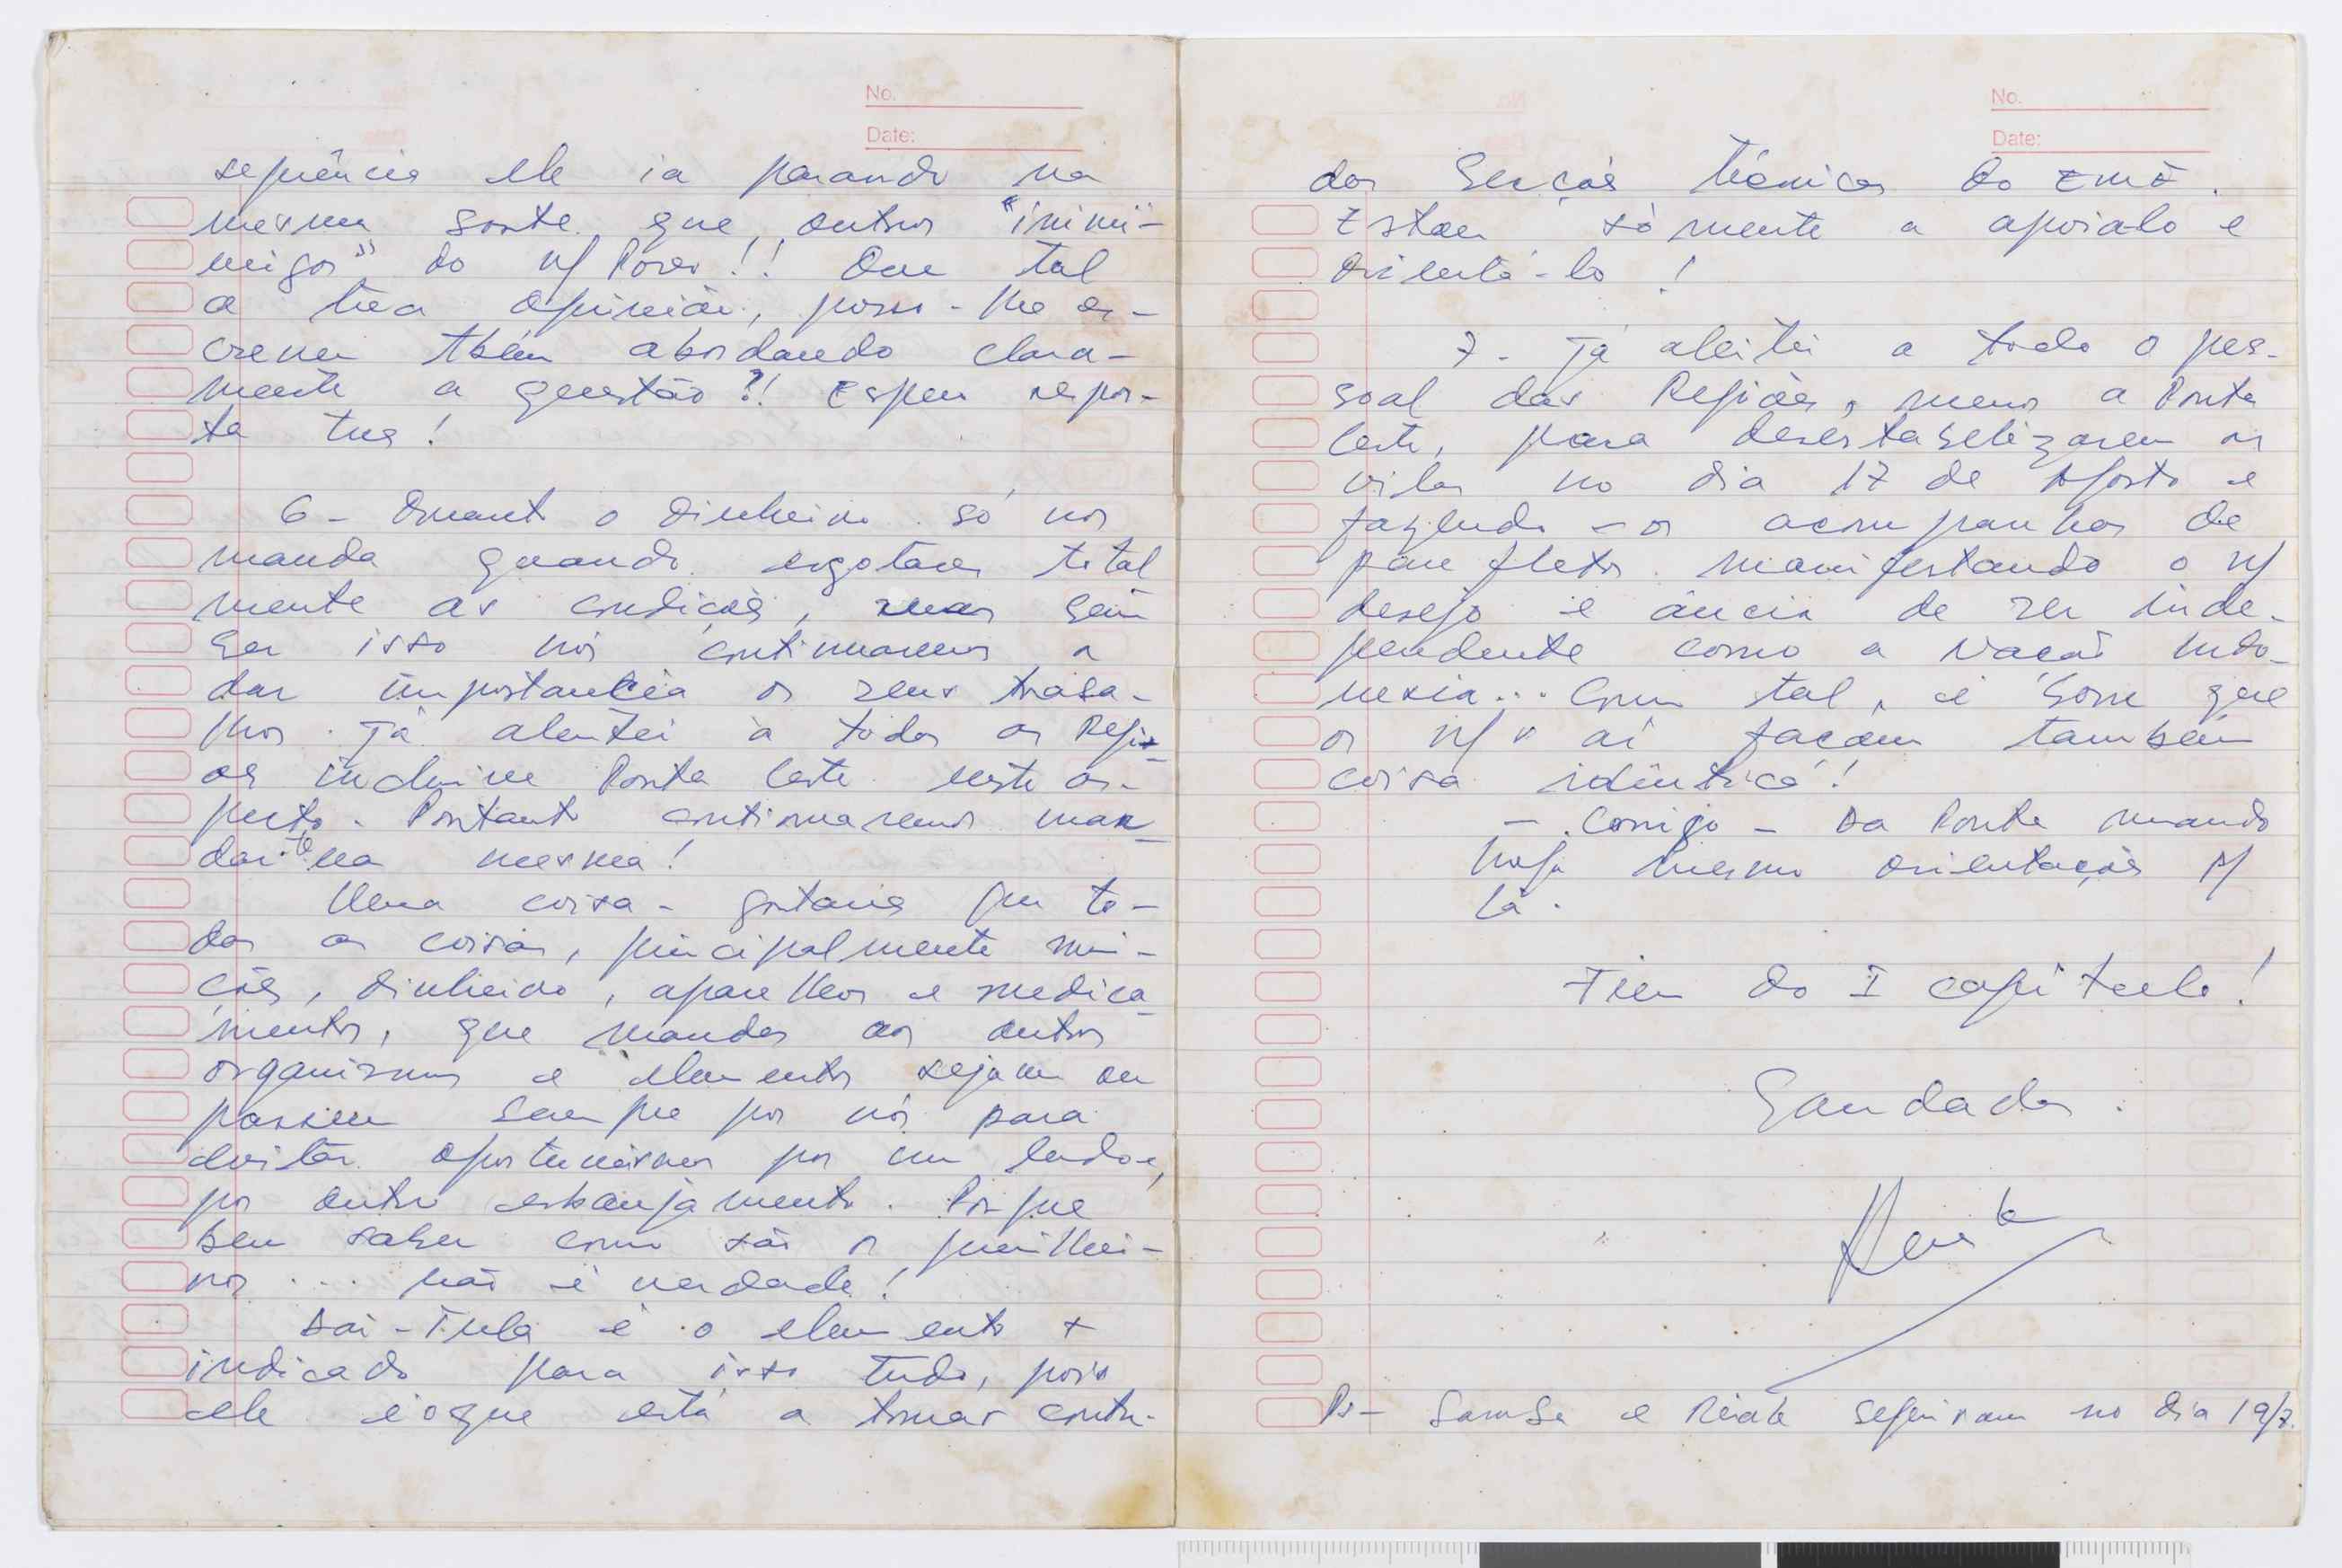 No.
Date:
sequência ele ia parando na
mesma sorte que outros "inimi-
migos" do n/ Povo!! Que tal
a tua opinião, posso-lhe es-
crever tbém abordando clara-
mente a questão?! Espero respos-
ta tua!
6 - Quanto o dinheiro só nos
manda quando esgotar total
mente as condições, mas sem
ser isso nós continuaremos a
dar importância os seus traba-
lhos. Já alertei a todas as Regi-
oes inclusive Ponta Leste neste as-
pecto. Portanto continuaremos man
dar-te na mesma!
Uma coisa - gostaria que to-
das as coisas, principalmente mi-
ções, dinheiro, aparelhos e medica-
mentos, que mandas aos outros
organismos e elementos sejam ou
passem sempre por nós para
evitar oportunismos por um lado e,
por outro esbanjamento. Porque
bem sabes como são os
não é verdade!
Sai-Tula é o elemento +
indicado para isso tudo, pois
ele é o que está a tomar conta-
No.
Date:
das Secções Técnicas do EMÊ.
Estou sòmente a apoia-lo e
orientá-lo!
7 - Já alertei a todo o pes-
soal das Regiões, menos a Ponta
Leste, para desestabelizarem as
vilas no dia 17 de Agosto e
fazendo-os acompanhar de
panfletos manifestando o n/
desejo e ância de ser inde-
pendente como a Nação Indo-
nésia... Como tal, é bom que
os n/s aí façam também
coisa idêntica!
- Corrijo - Da Ponta mando
hoje mesmo orientações p/
lá.
Fim do I capítulo!
Saudades.
Ps - Samba e Reinate seguiram no dia 19/7.